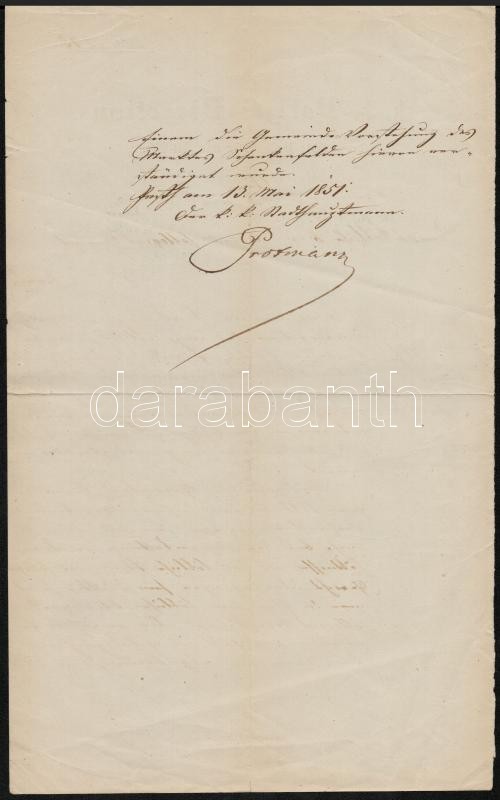 einem die Gemeinde Vorstehung des
Marktes Schenkenfelden hievon ver-
ständiget wurde.
Pesth am 13. Mai 1851.
Der k. k. Stadthauptmann.
Protmann
darabanth